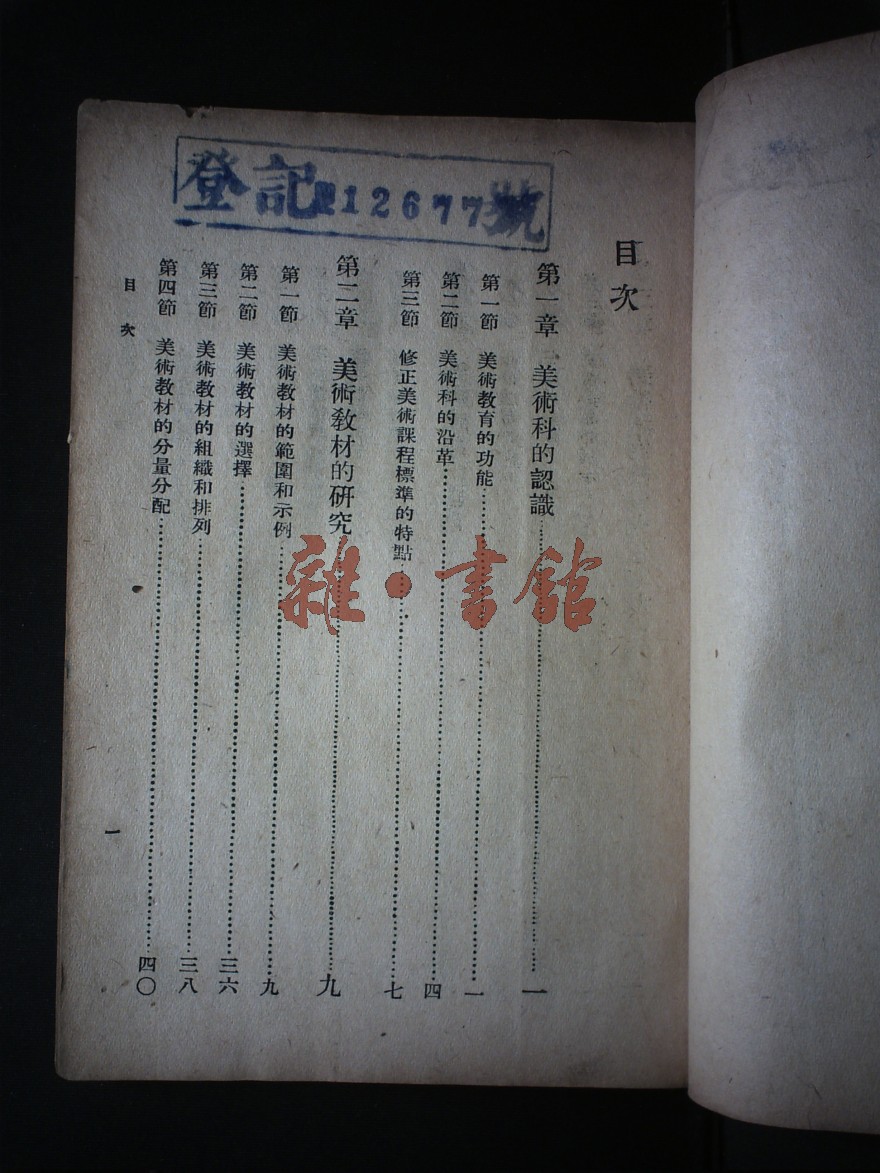 登記212677號
目次
第一章 美術科的認識……一
第一節 美術教育的功能……一
第二節 美術科的沿革……四
第三節 修正美術課程標準的特點……七
第二章 美術教材的研究……九
第一節 美術教材的範圍和示例……九
第二節 美術教材的選擇……三六
第三節 美術教材的組織和排列……三八
第四節 美術教材的分量分配……四〇
目次
一
雜·書館